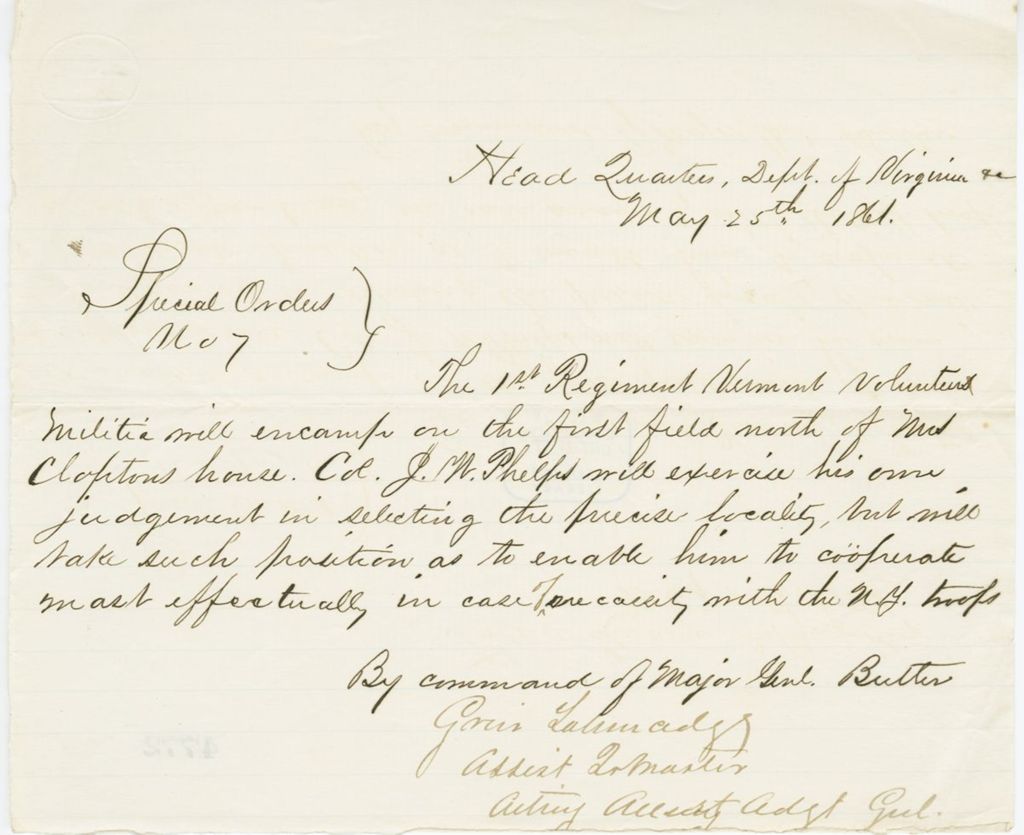 Head Quarters, Dept. of Virginia &c
May 25th 1861.
Special Orders
No 7
The 1st Regiment Vermont Volunteers
Militia will encamp on the first field north of Mrs
Cloptons house. Col. J. W. Phelps will exercise his own
judgement in selecting the precise locality, but will
take such position as to enable him to coöperate
most effectually in case of necessity with the N.Y. troops
By command of Major Genl. Butler
Grier Talmadge
Assist Qr Master
Acting Assist Adgt Genl.